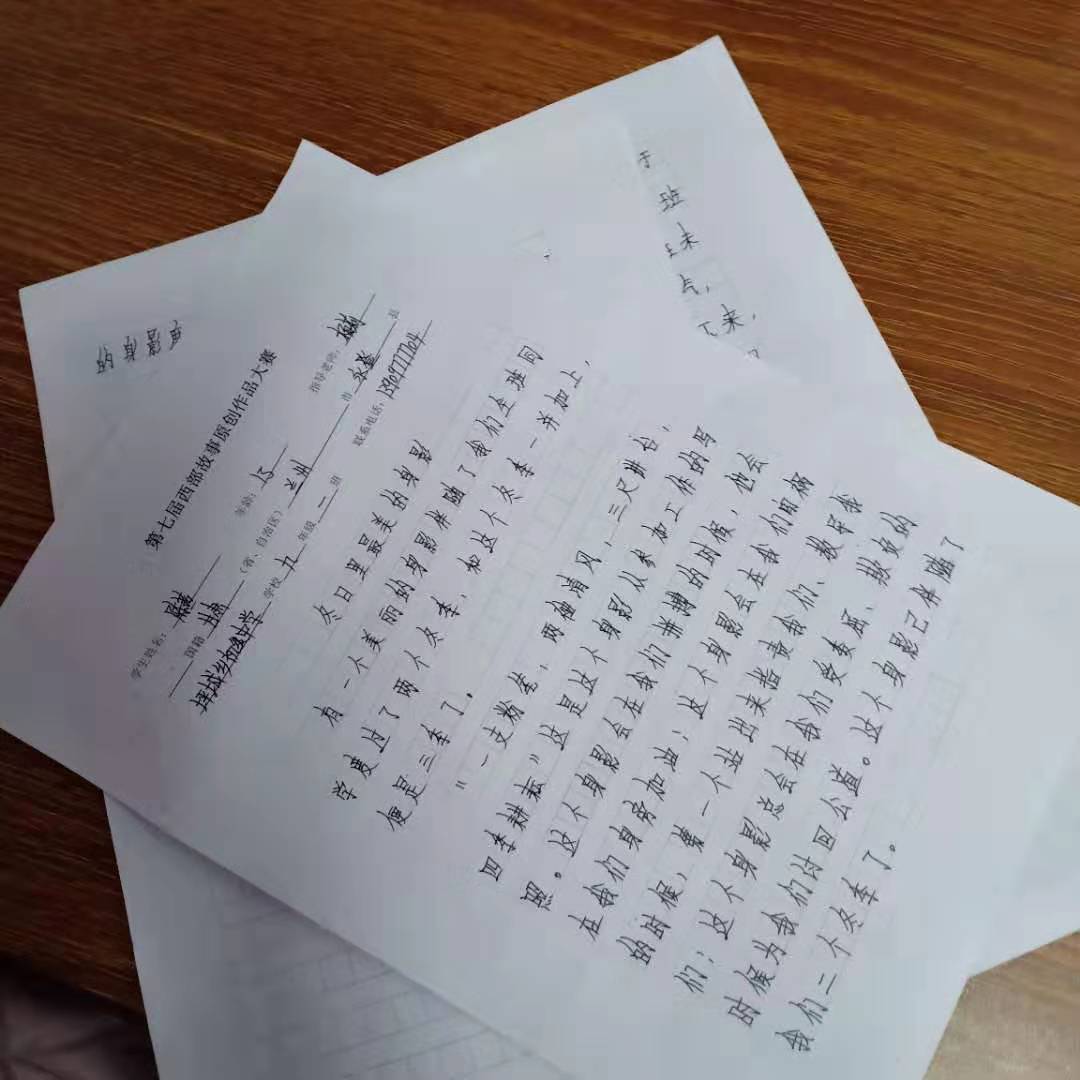 第七届西部故事原创作品大赛
学生姓名: 年龄: 15 指导老师:
国籍 甘肃 (省、自治区) 兰州 市 永登 县
坪城乡 中学 学校 九 年级 一 班 联系电话:
冬日里最美的身影
有一个美丽的身影伴随了我们全班同
学度过了两个冬季, 如这个冬季一并加上,
便是三季了。
“一支粉笔, 两袖清风, 三尺讲台,
四季耕耘”这是这个身影从参加工作的写
照。这个身影会在我们拼搏的时候, 也会
在我们身旁加油; 这个身影会在我们犯病
的时候, 第一个站出来指责我们、教导我
们; 这个身影总会在我们受委屈、挨饿的
时候为我们讨回公道。这个身影已伴随了
我们二个冬季了。
于
班
来
气,
来,
的